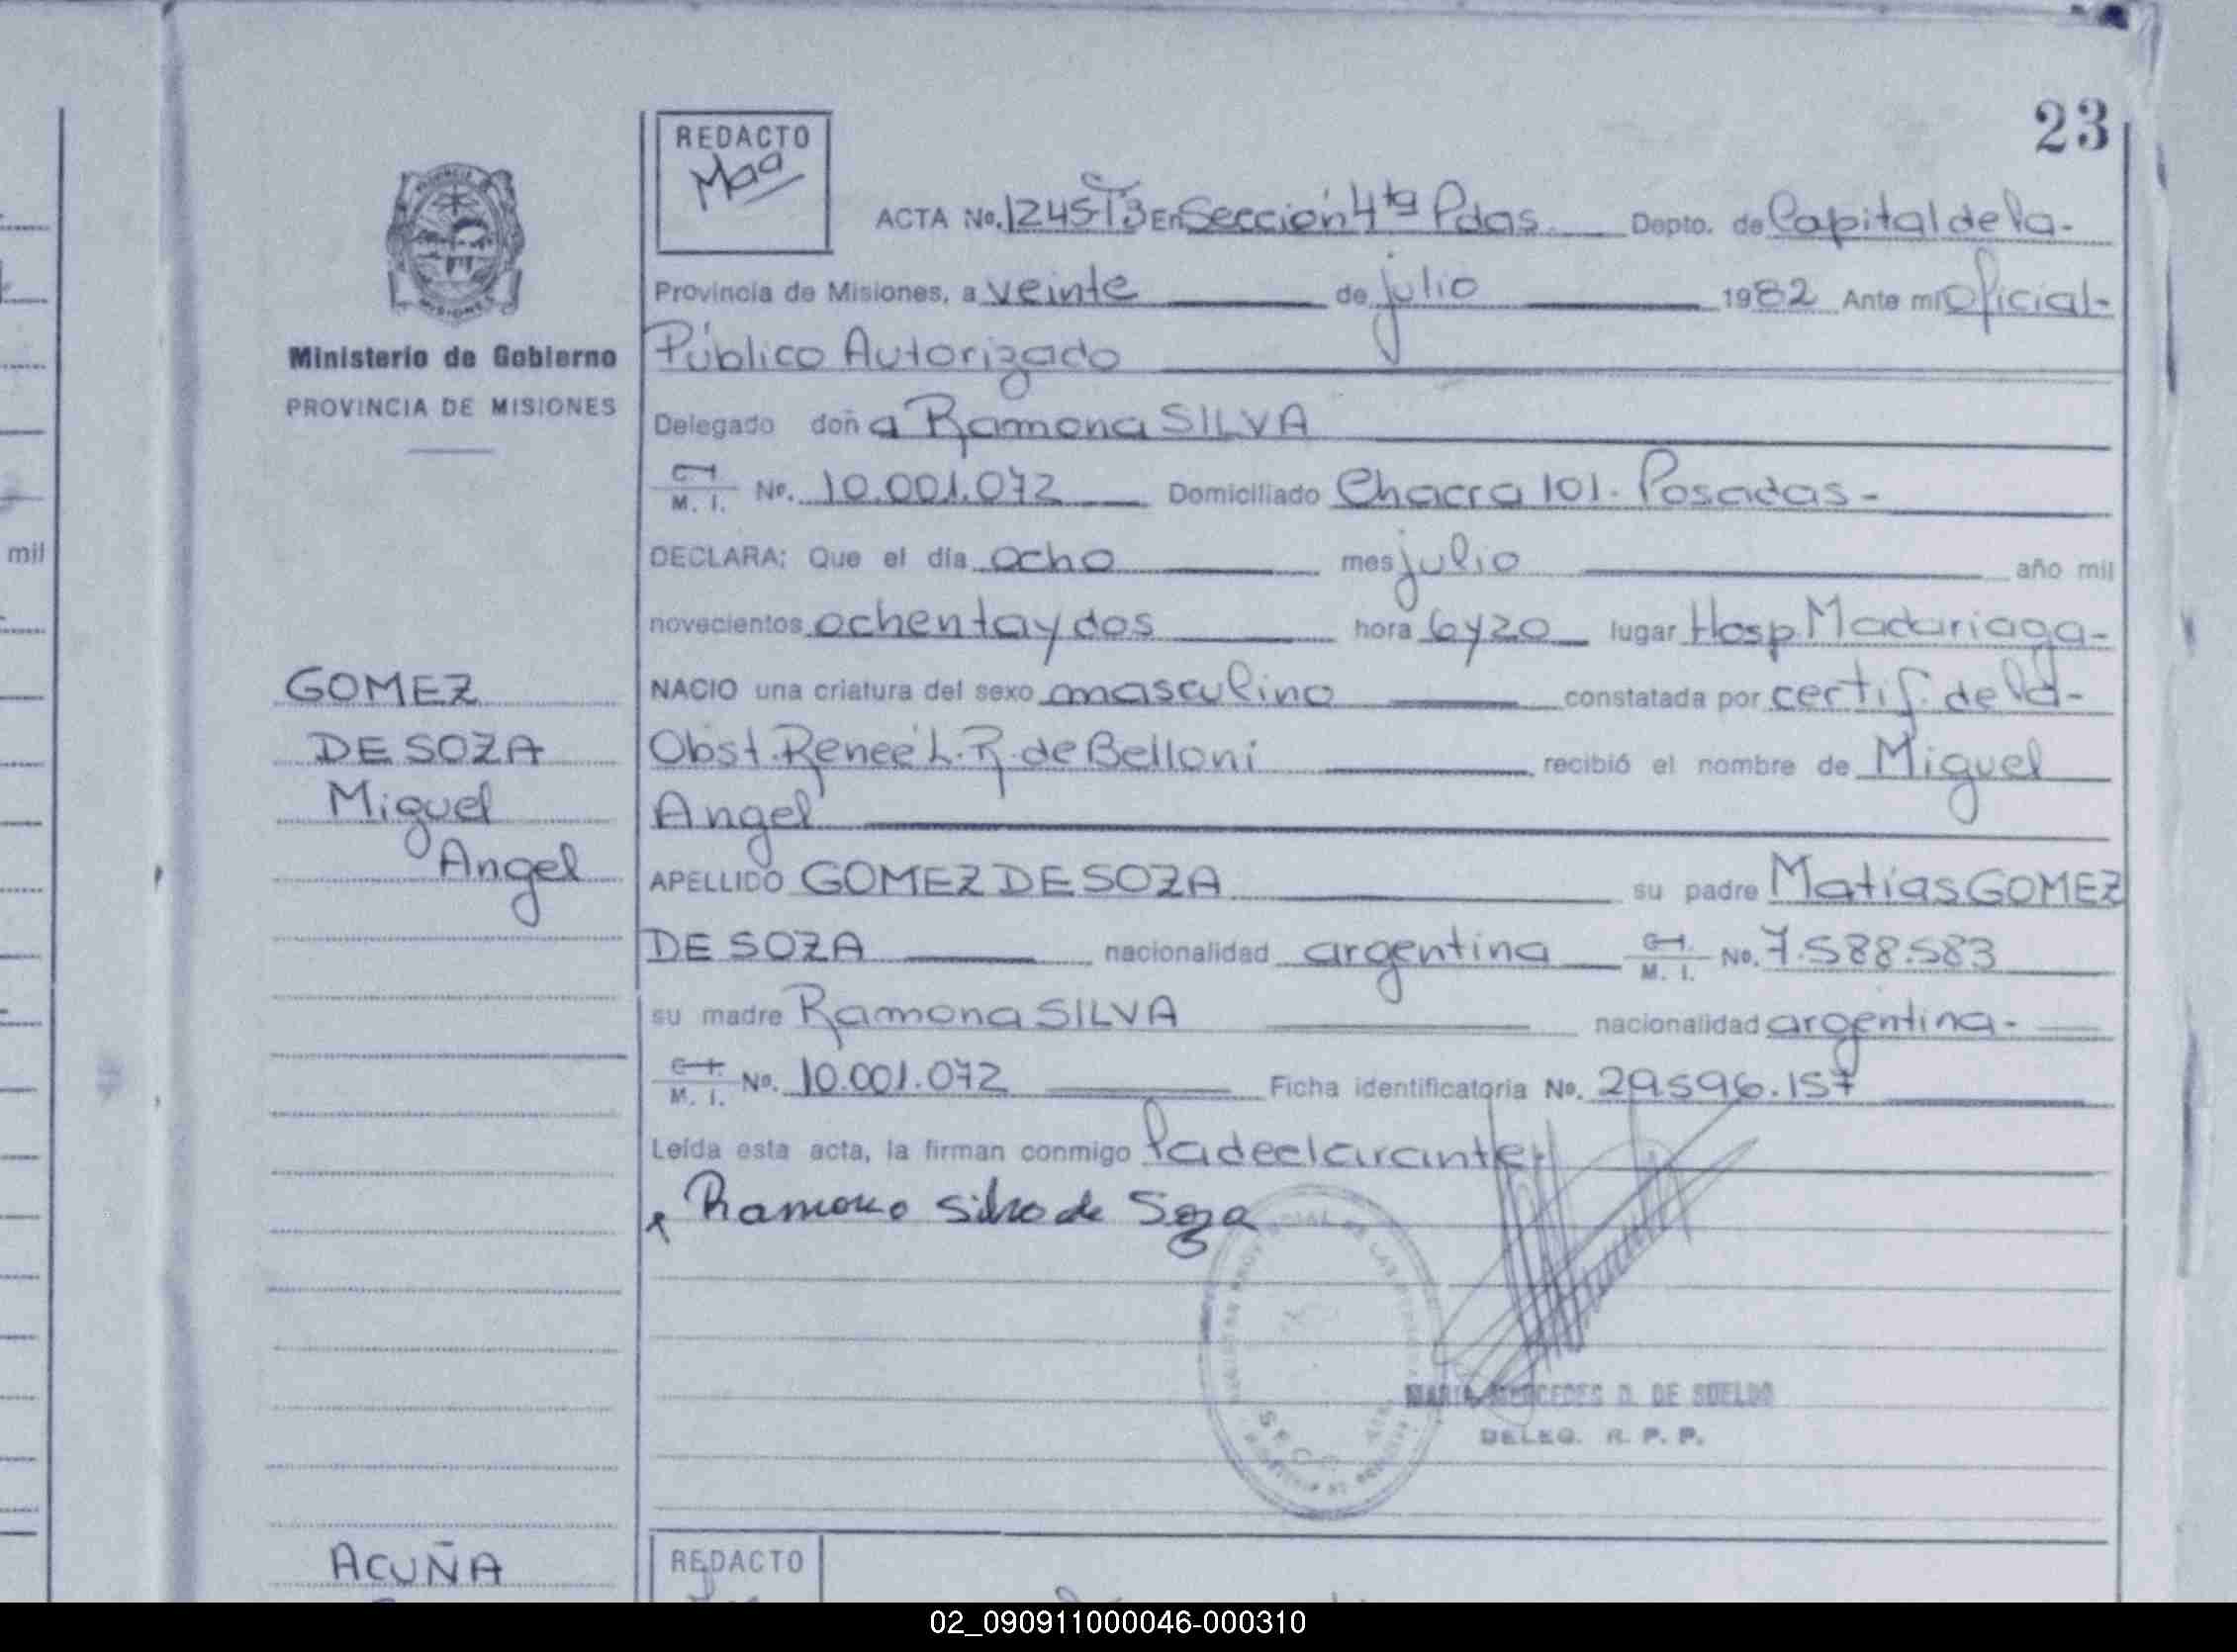 23
REDACTO
Maa
ACTA No. 1245 T3 En Sección 4ta Pdas. Depto. de Capital de la-
Provincia de Misiones, a veinte de julio 1982 Ante mi Oficial-
Público Autorizado
Ministerio de Gobierno
PROVINCIA DE MISIONES
Delegado doña Ramona SILVA
C. I. M. I. No. 10.001.072 Domiciliado Chacra 101. Posadas-
mil
DECLARA: Que el día ocho mes julio año mil
novecientos ochenta y dos hora 6 y 20 lugar Hosp. Madariaga-
GOMEZ
DE SOZA
Miguel
Angel
NACIO una criatura del sexo masculino constatada por certif. de la-
Obst. Reneé L. R. de Belloni recibió el nombre de Miguel
Angel
APELLIDO GOMEZ DE SOZA su padre Matías GOMEZ
DE SOZA nacionalidad argentina C. I. M. I. No. 7.588.583
su madre Ramona SILVA nacionalidad argentina-
C. I. M. I. No. 10.001.072 Ficha identificatoria No. 29.596.157
Leída esta acta, la firman conmigo la declarante
x Ramona Silva de Soza
MARIA MERCEDES D. DE SUELDO
DELEG. R. P. P.
ACUÑA
REDACTO
02_090911000046-000310